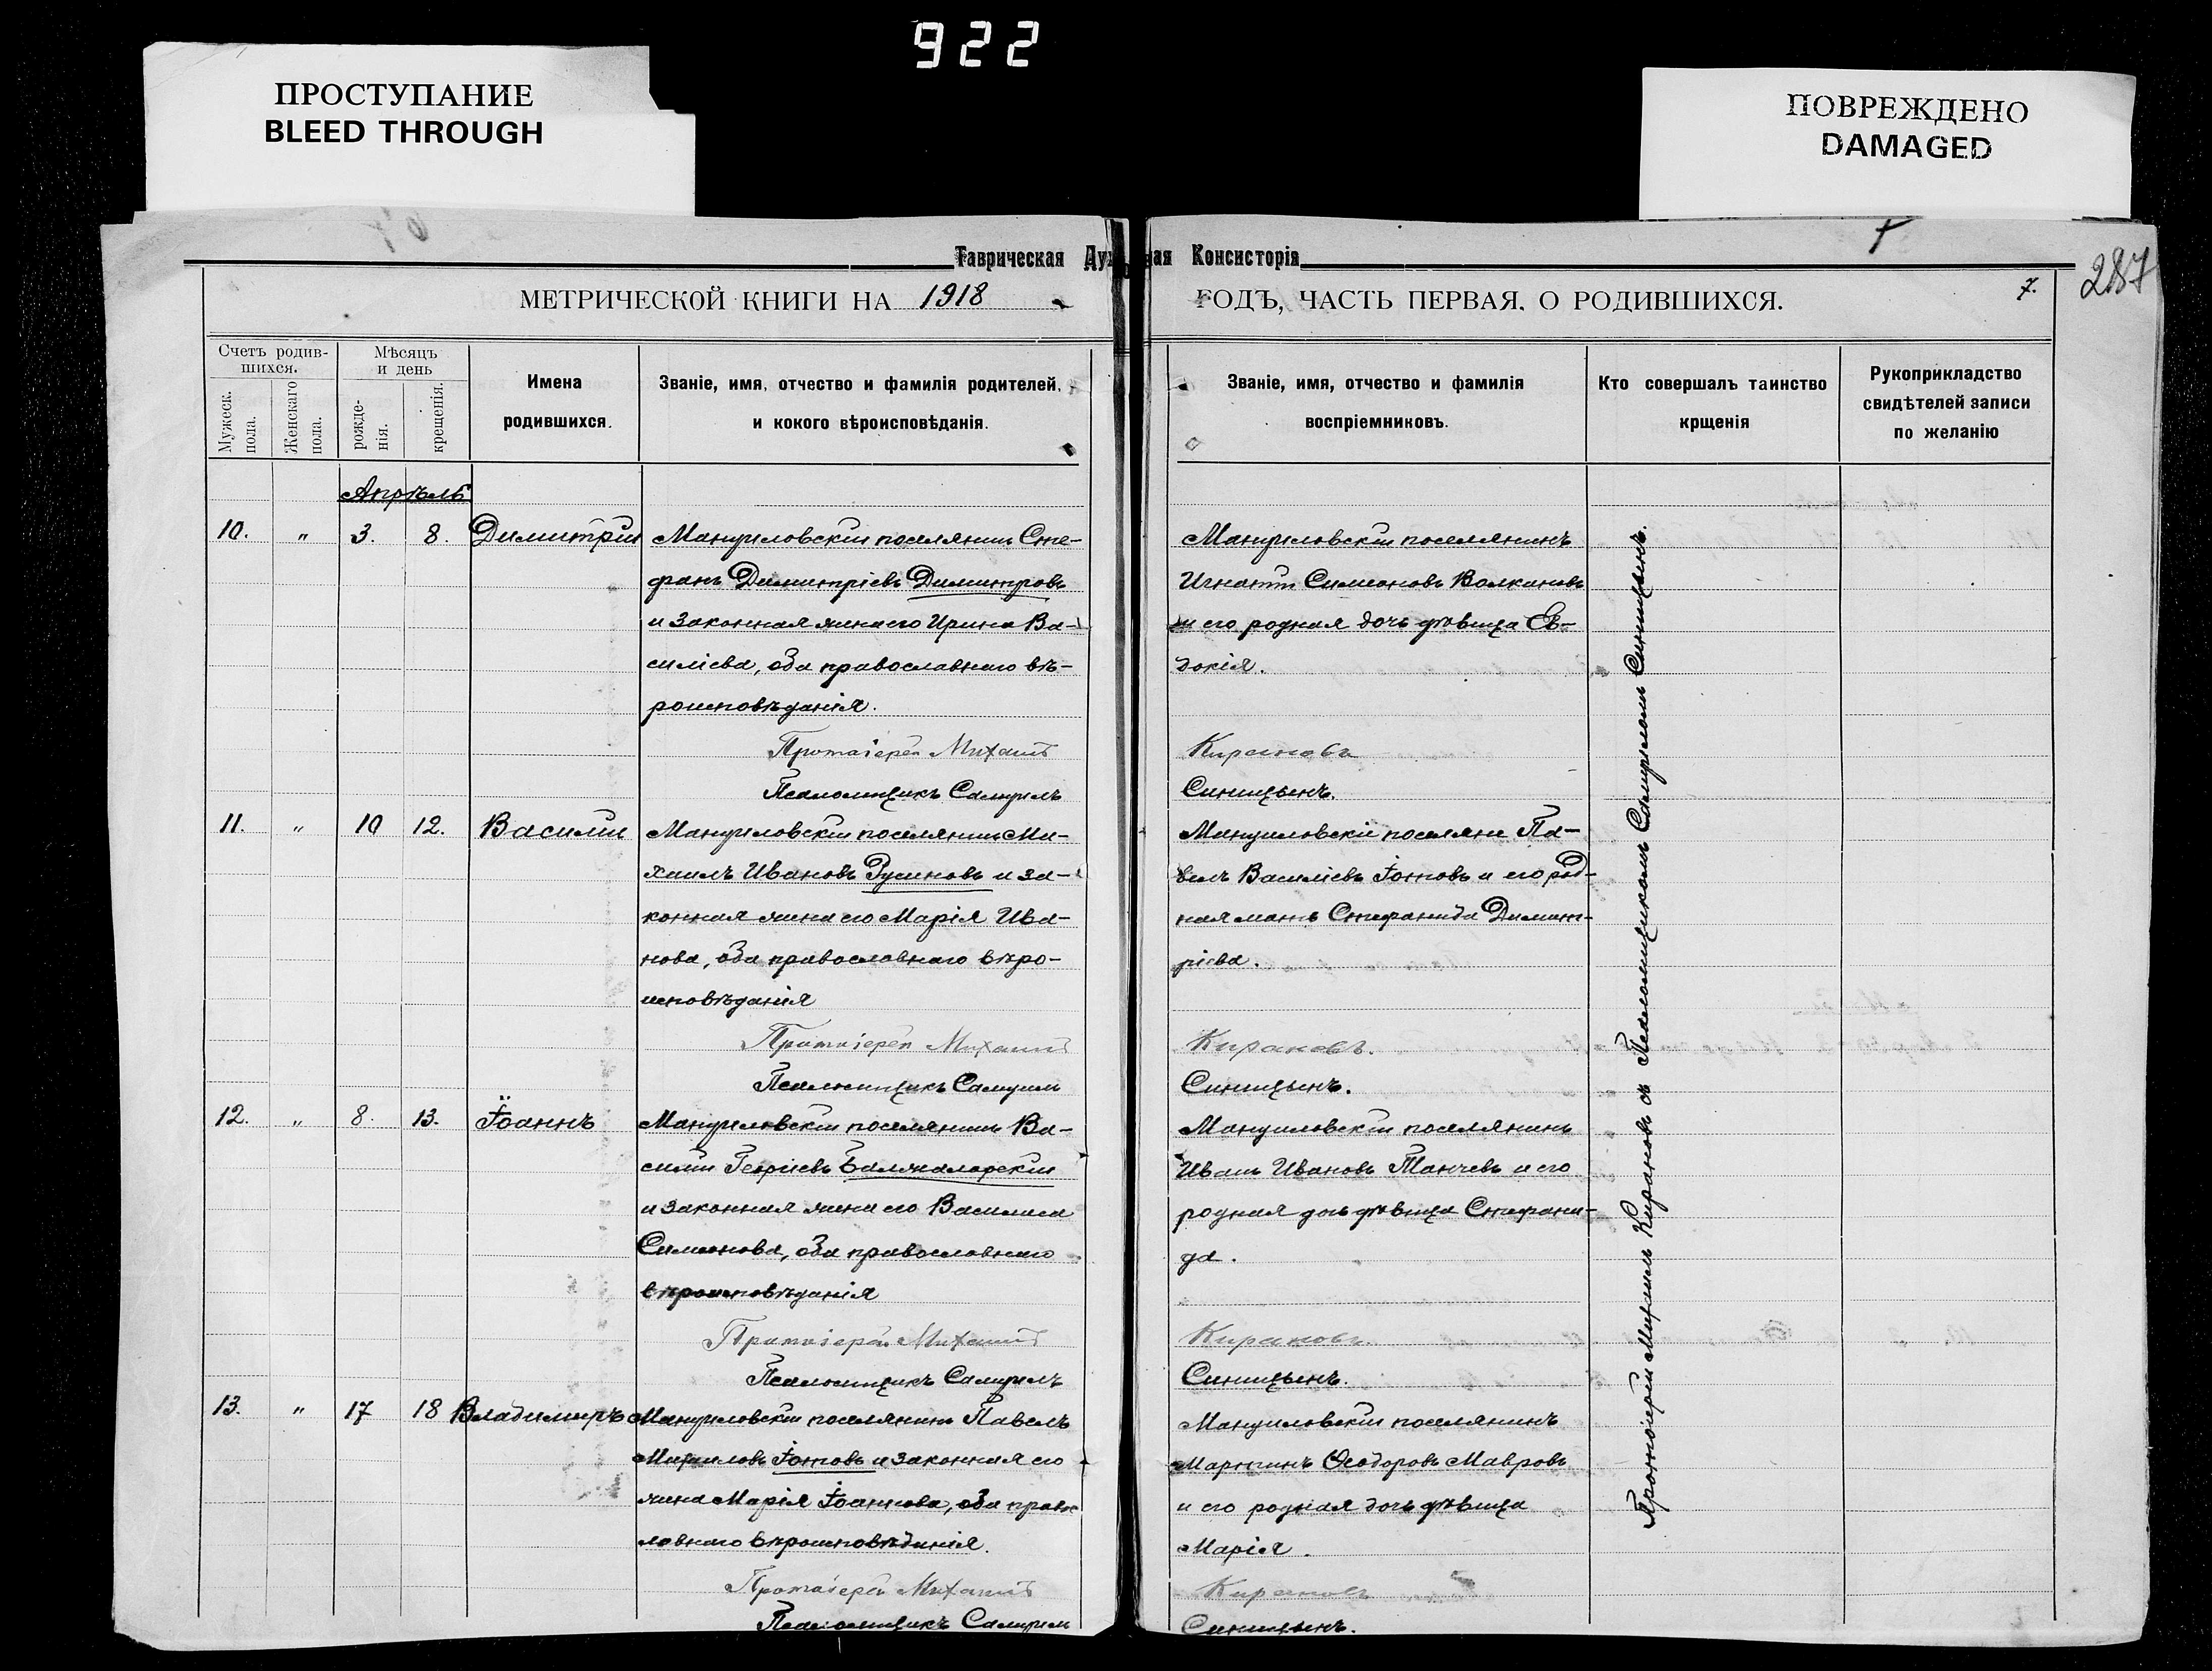 922
ПРОСТУПАНИЕ
BLEED THROUGH
ПОВРЕЖДЕНО
DAMAGED
Таврическая Дух ная Консисторія
287
МЕТРИЧЕСКОЙ КНИГИ НА 1918
ГОДЪ, ЧАСТЬ ПЕРВАЯ, О РОДИВШИХСЯ.
7.
Счетъ родив-
шихся.
Мужеск.
пола.
Женскаго
пола.
Мѣсяцъ
и день
рожде-
нія.
крещенія.
Имена
родившихся.
Званіе, имя, отчество и фамилія родителей,
и кокого вѣроисповѣданія.
Званіе, имя, отчество и фамилія
воспріемниковъ.
Кто совершалъ таинство
крщенія
Рукоприкладство
свидѣтелей записи
по желанію
Апрѣль
10. " 3. 8. Димитрій
Мануиловскій поселянинъ Сте-
фанъ Димитріевъ Димитровъ
и законная жена его Ирина Ва-
силіева, оба православнаго вѣ-
роисповѣданія.
Протоіерей Михаилъ
Псаломщикъ Самуилъ
Мануиловскій поселянинъ
Игнатій Симеоновъ Волкановъ
и его родная дочь дѣвица Ев-
докія.
Кирановъ
Синицынъ.
11. " 10 12. Василій
Мануиловскій поселянинъ Ми-
хаилъ Ивановъ Русиновъ и за-
конная жена его Марія Ива-
нова, оба православнаго вѣро-
исповѣданія
Протоіерей Михаилъ
Псаломщикъ Самуилъ
Мануиловскіе поселяне Па-
велъ Василіевъ Іотовъ и его род-
ная мать Стефанида Димит-
ріева.
Кирановъ.
Синицынъ.
12. " 8. 13. Іоаннъ
Мануиловскій поселянинъ Ва-
силій Георгіевъ Балжаларскій
и законная жена его Василиса
Симеонова, оба православнаго
вѣроисповѣданія
Протоіерей Михаилъ
Псаломщикъ Самуилъ
Мануиловскій поселянинъ
Иванъ Ивановъ Танчевъ и его
родная дочь дѣвица Стефани-
да.
Кирановъ.
Синицынъ.
13. " 17 18 Владимиръ
Мануиловскій поселянинъ Павелъ
Михаиловъ Іотовъ и законная его
жена Марія Іоаннова, оба правос
лавнаго вѣроисповѣданія.
Протоіерей Михаилъ
Псаломщикъ Самуилъ
Мануиловскій поселянинъ
Мартинъ Ѳеодоровъ Мавровъ
и его родная дочь дѣвица
Марія.
Кирановъ
Синицынъ.
Протоіерей Михаилъ Кирановъ съ Псаломщикомъ Самуиломъ Синицынъ.